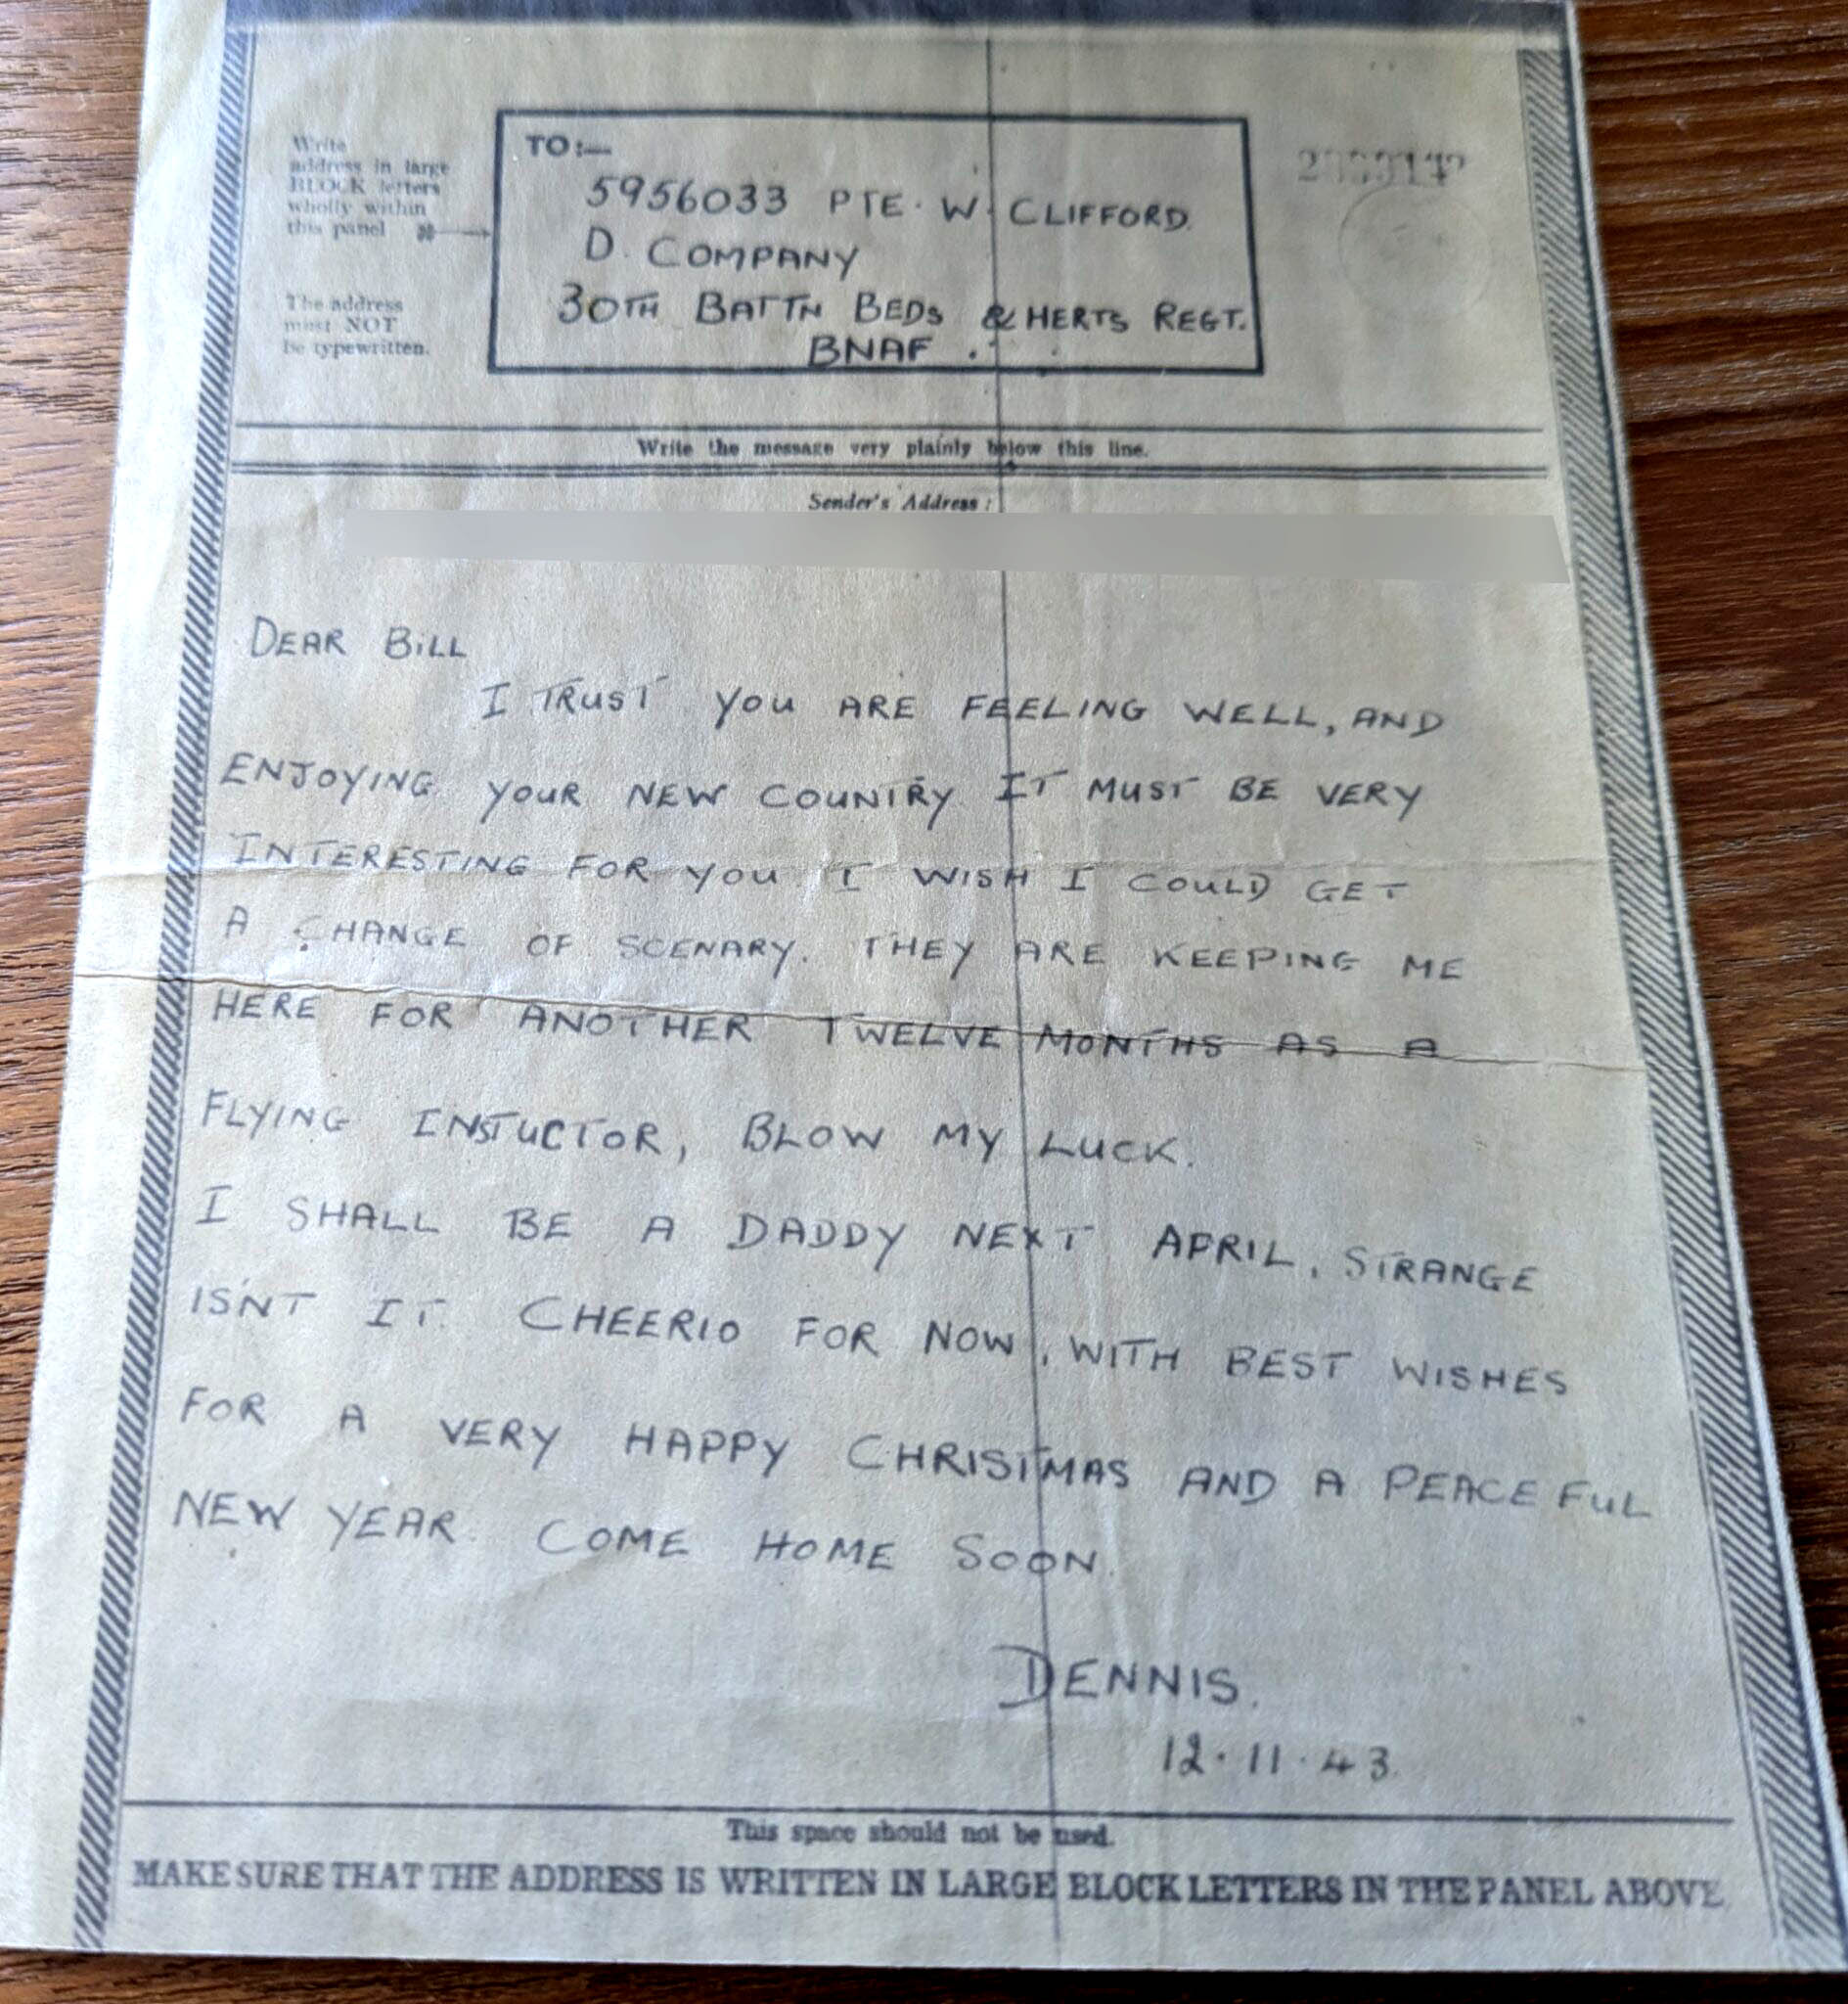 Write
address in large
BLOCK letters
wholly within
this panel
The address
must NOT
be typewritten.
TO:—
5956033 PTE. W. CLIFFORD.
D. COMPANY
30TH BATTN BEDS & HERTS REGT.
BNAF.
Write the message very plainly below this line.
Sender's Address:
DEAR BILL
I TRUST YOU ARE FEELING WELL, AND
ENJOYING YOUR NEW COUNTRY IT MUST BE VERY
INTERESTING FOR YOU I WISH I COULD GET
A CHANGE OF SCENARY. THEY ARE KEEPING ME
HERE FOR ANOTHER TWELVE MONTHS AS A
FLYING INSTUCTOR, BLOW MY LUCK.
I SHALL BE A DADDY NEXT APRIL, STRANGE
ISNT IT. CHEERIO FOR NOW, WITH BEST WISHES
FOR A VERY HAPPY CHRISTMAS AND A PEACEFUL
NEW YEAR. COME HOME SOON.
DENNIS.
12.11.43.
This space should not be used.
MAKE SURE THAT THE ADDRESS IS WRITTEN IN LARGE BLOCK LETTERS IN THE PANEL ABOVE